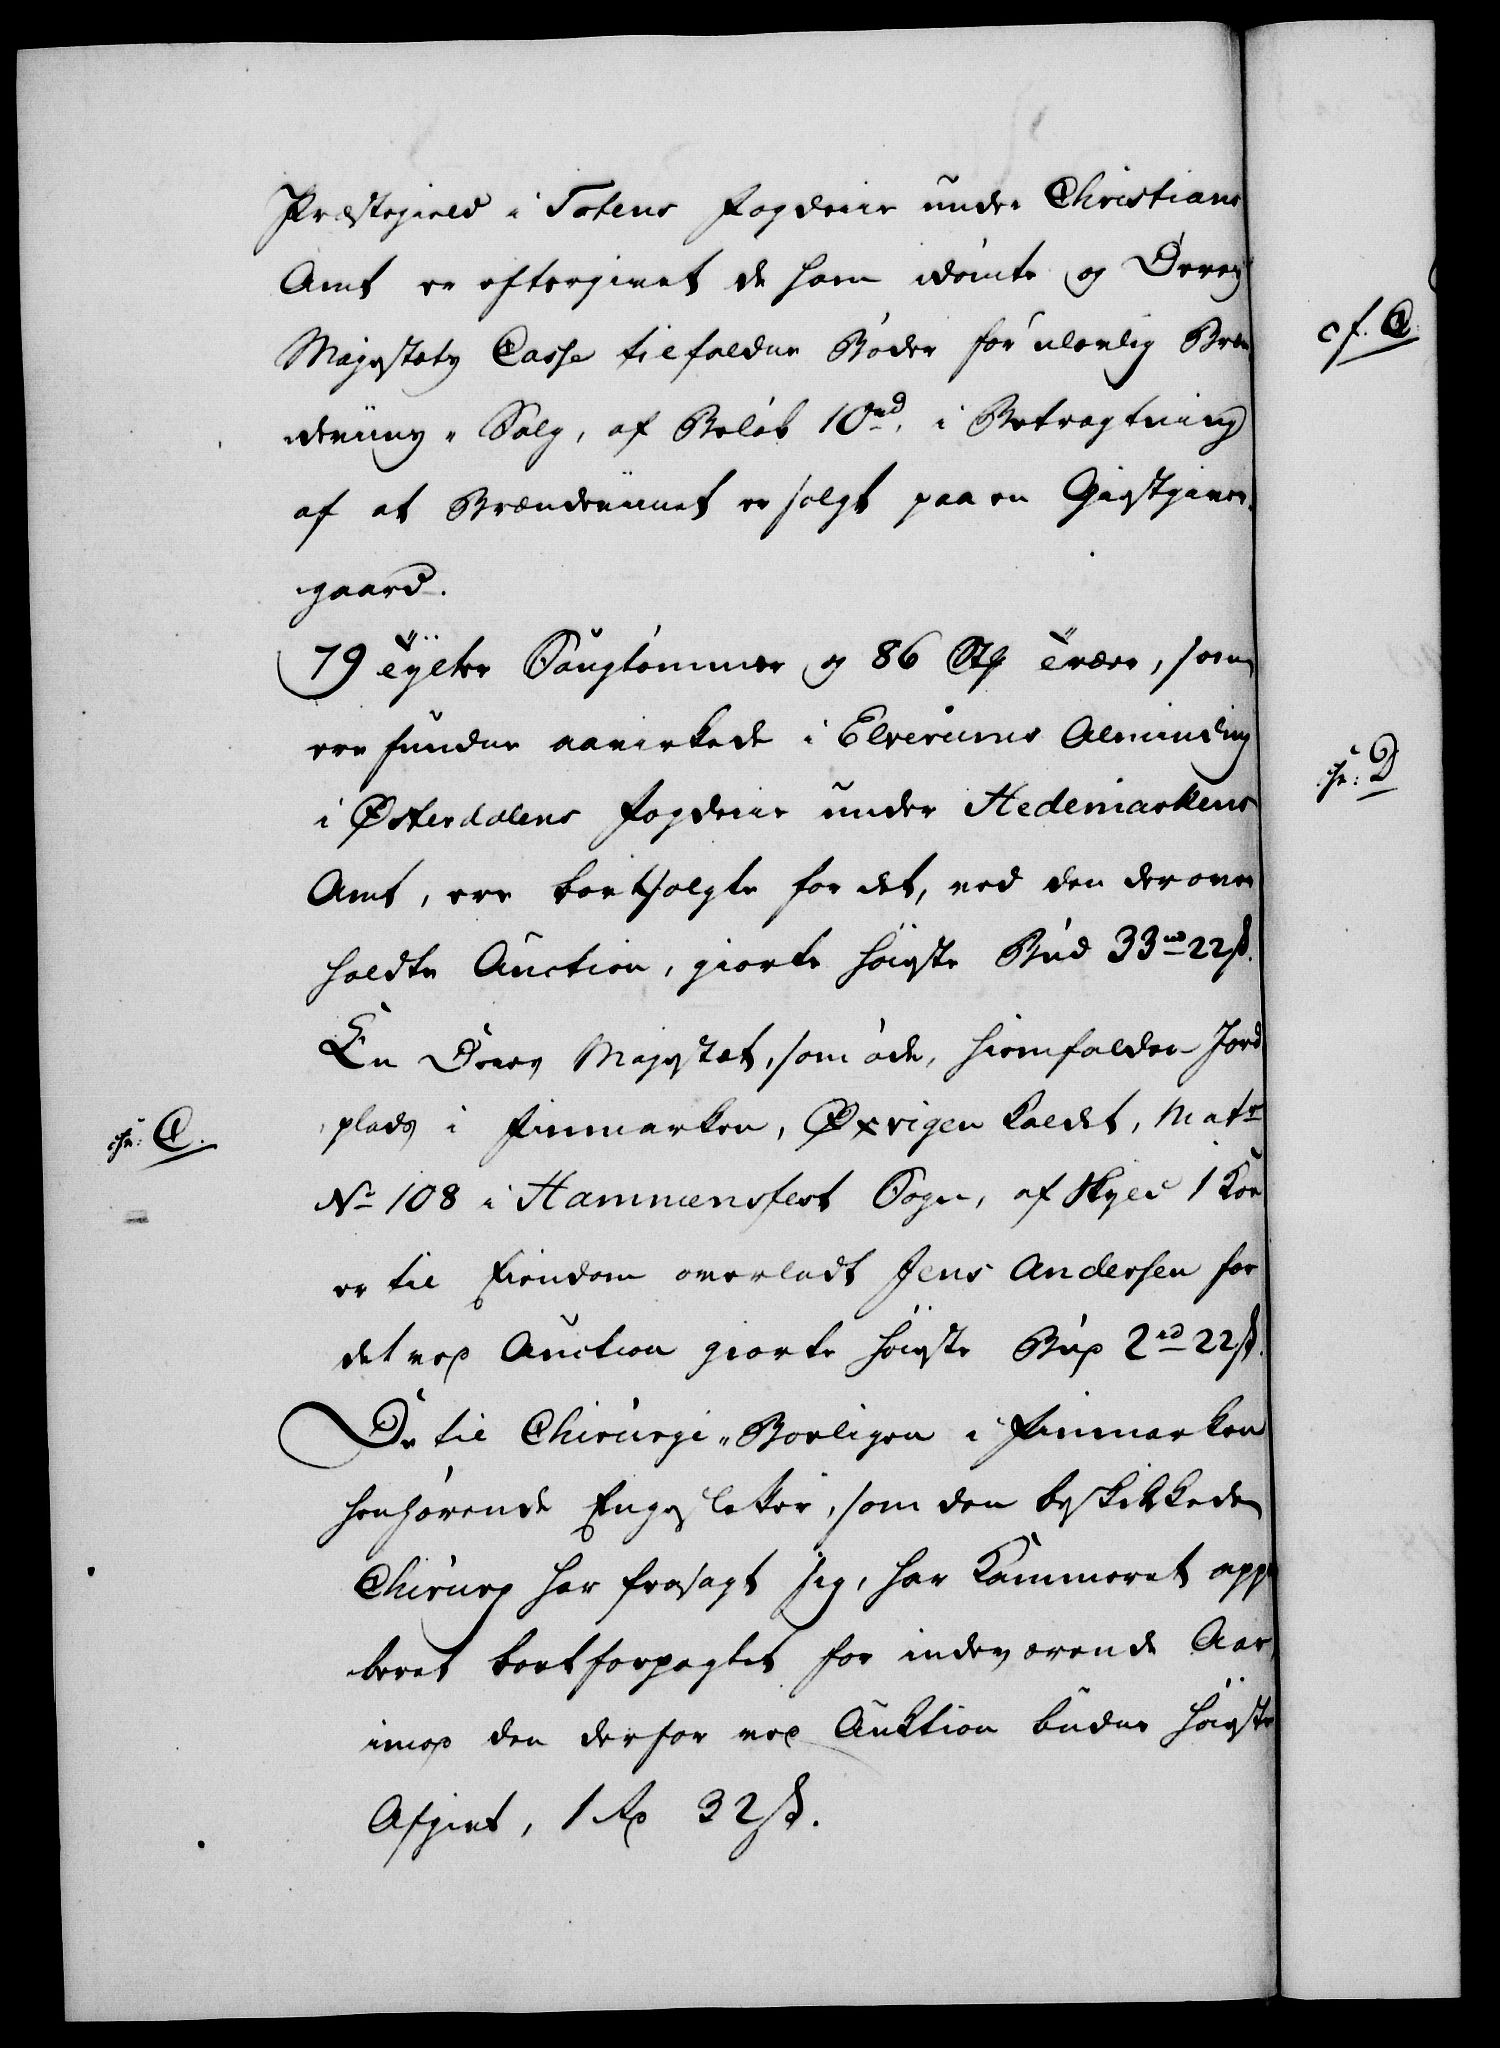 Præstegield i Totens Fogderie under Christians
Amt er eftergivet de ham idømte og Deres
Majestæts Casse tilfaldne Bøder for ulovlig Bræn
deviins Salg, af Beløb 10 rd, i Betragtning
af at Brændeviinet er solgt paa en Giestgiver-
gaard.
79 Tylter Saugtømmer og 86 Stk Træer, som
ere fundne aavirkede i Elverums Alminding
i Østerdalens Fogderie under Hedemarkens
Amt, ere bortsolgte for det, ved den derover
holdte Auction, giorte høieste Bud 33 rd 22 s.
En Deres Majestæt, som øde, hiemfalden Jord
plads i Finmarken, Øxvigen kaldet, Matr
No 108 i Hammersfest Sogn, af Skyld 1
er til Eiendom overladt Jens Andersen for
det ved Auction giorte høieste Bud 2 rd 22 s.
De til Chirurgi-Boeligen i Finmarken
henhørende Engesletter, som den beskikkede
Chirurg har frasagt sig, har Kammeret app
beret bortforpagtet for indeværende Aar,
imod den derfor ved Auktion budne høieste
Afgivt, 1 Rd 32 s.
cf. C
chr: D
chr: C.